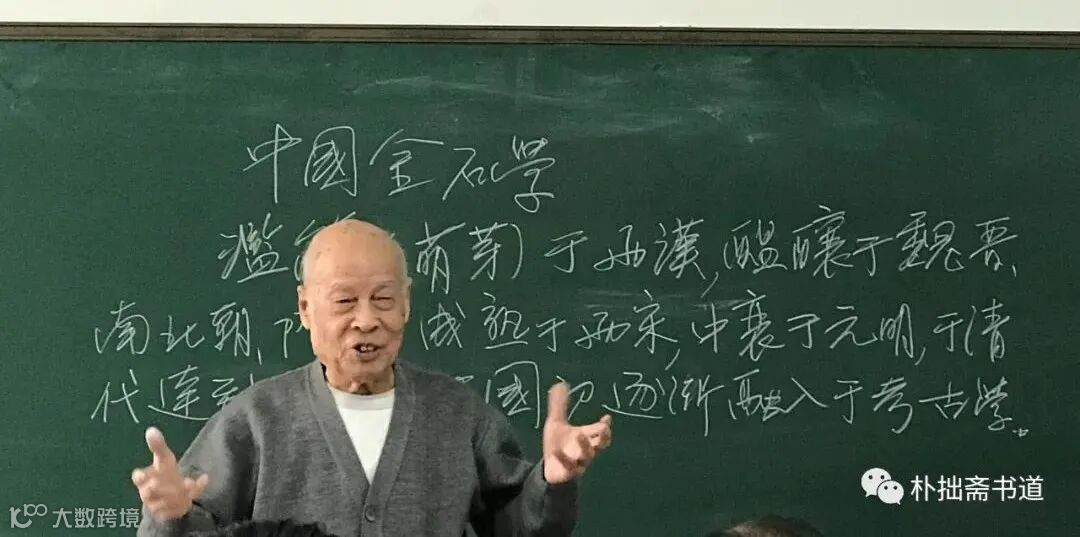 中國金石學
濫 萌芽)于両漢,醞釀于魏晋、
南北朝、 成熟于両宋,中衰于元明,于清
代達到 國初逐漸融入于考古學。
朴拙斋书道
大数跨境